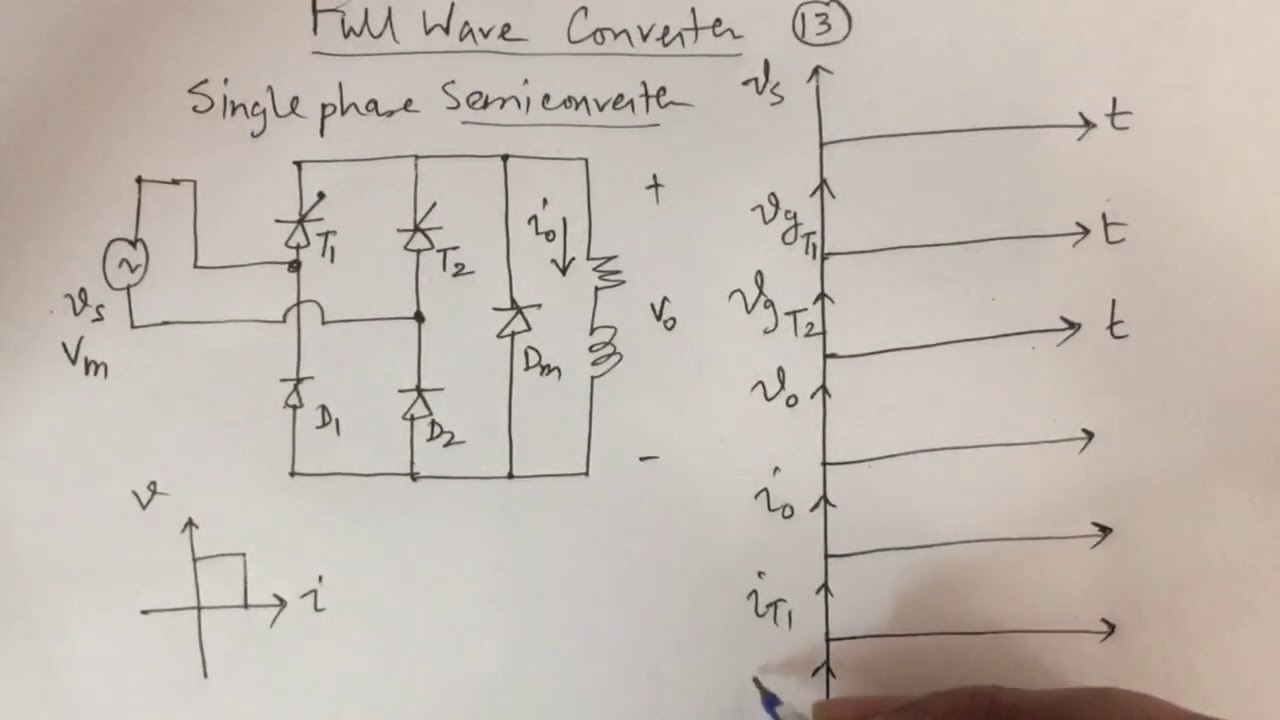 Full Wave Converter 13
Single phase Semiconverter
vs
t
T1
T2
vs
Vm
i0
+
v0
-
Dm
D1
D2
v
i
vgT1
t
vgT2
t
v0
i0
iT1